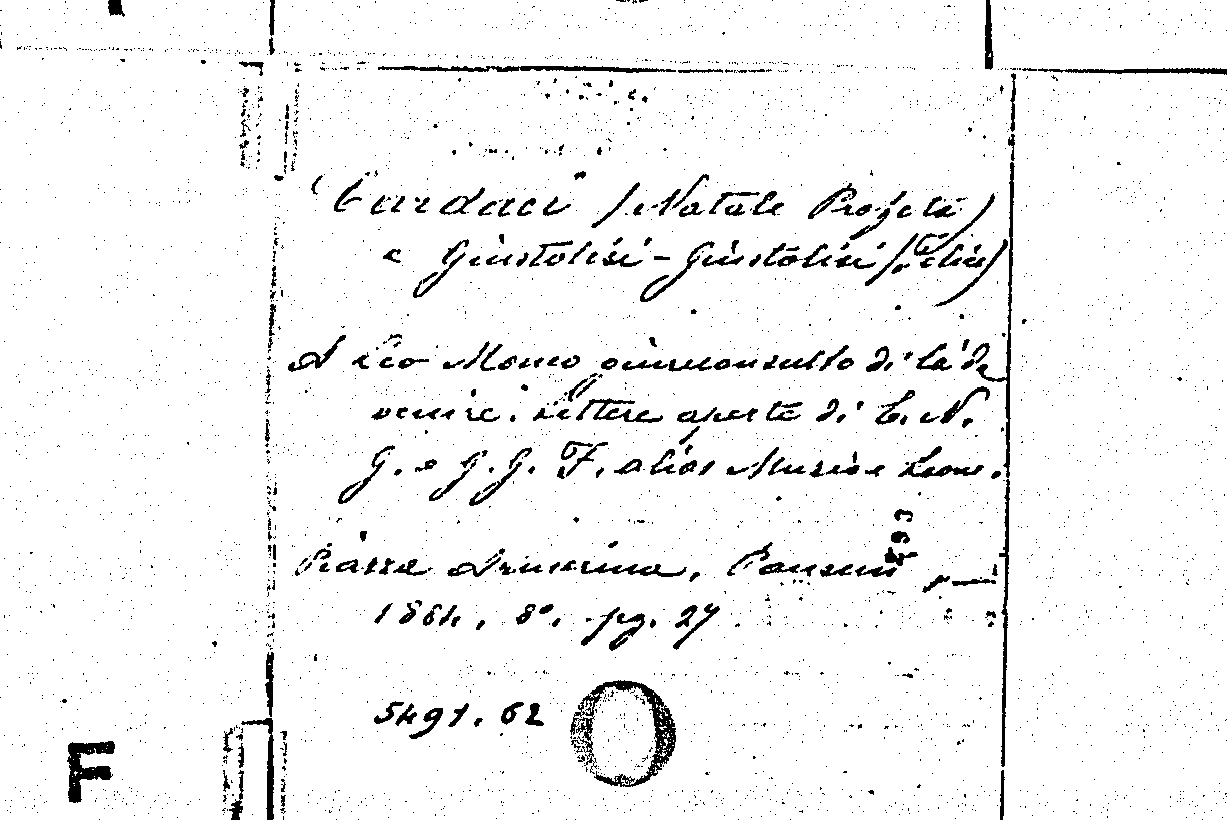 "Cardaci" (Natale Profeta)
e Giustolisi-Giustolisi (Felice)
A Leo Moneo giureconsulto di là da
venire. Lettere aperte di C. N.
G. e G. G. F. alias Muzio e Leone.
Piazza Armerina, Pansini
1864, 8°. pg. 27
5491. 62
F